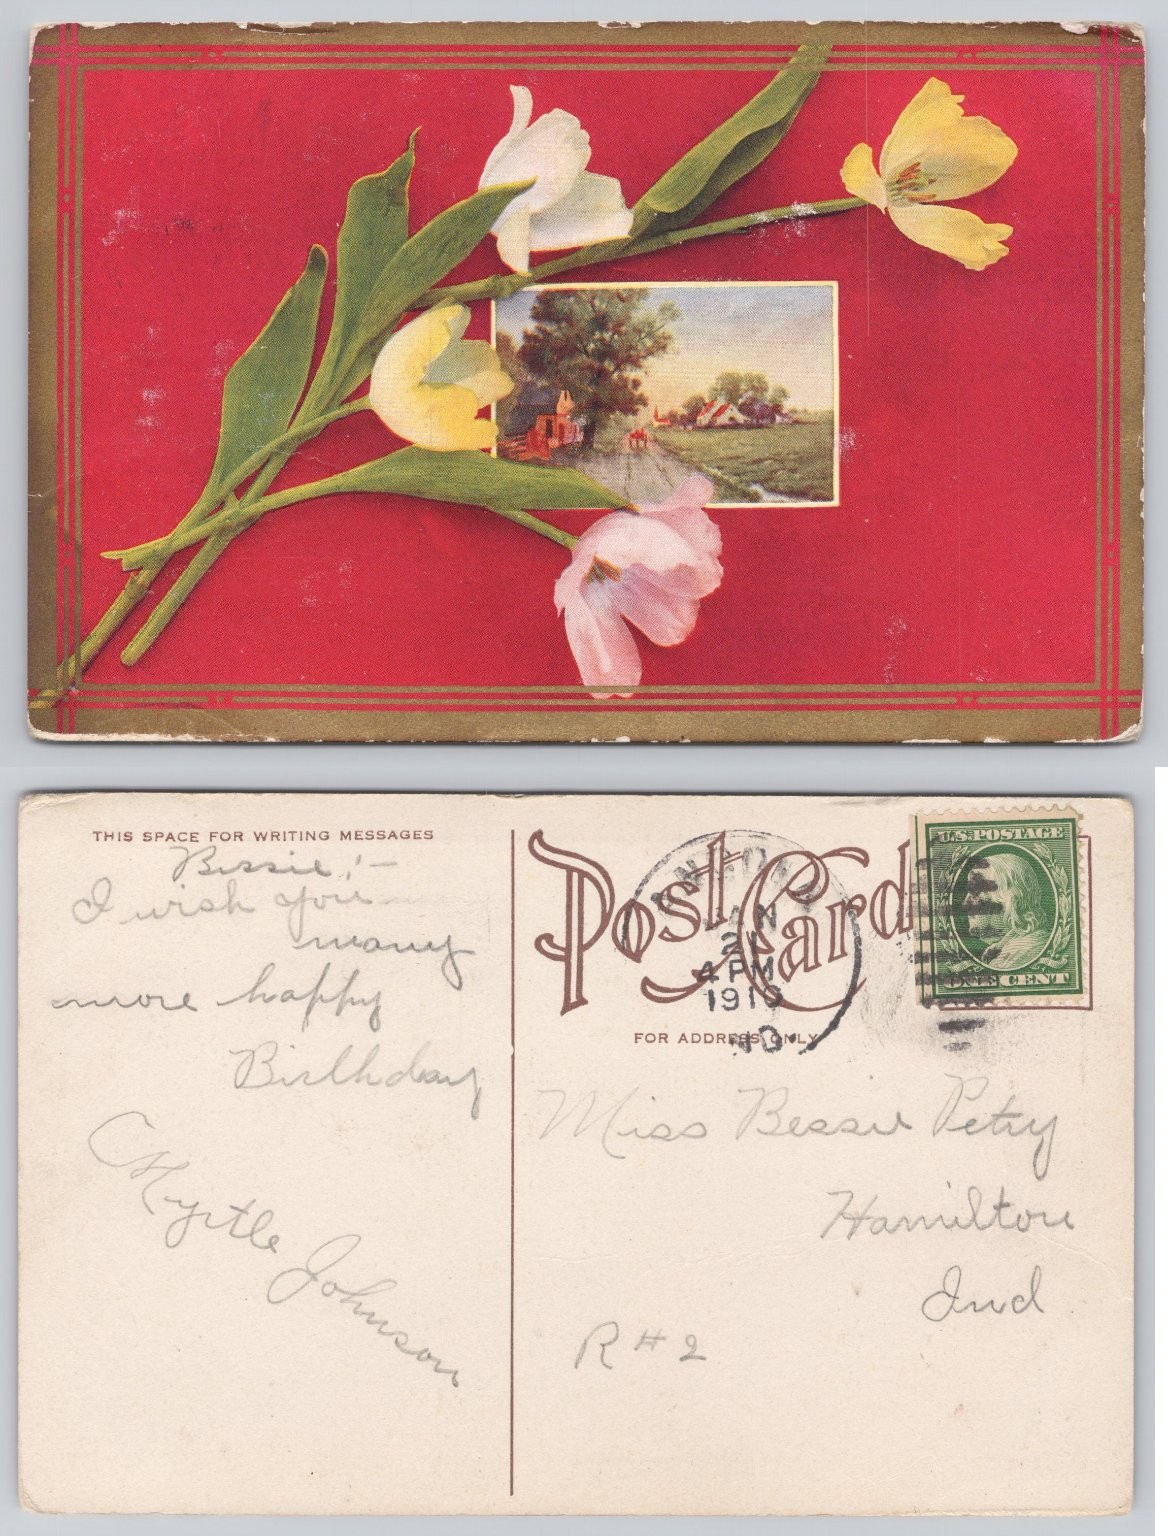 THIS SPACE FOR WRITING MESSAGES
Bessie,:—
I wish you
many
more happy
Birthday
Myrtle Johnson
Post Card
JAN
21
4 PM
1910
IND.
U.S. POSTAGE
ONE CENT
FOR ADDRESS ONLY
Miss Bessie Petry
Hamilton
Ind
R # 2